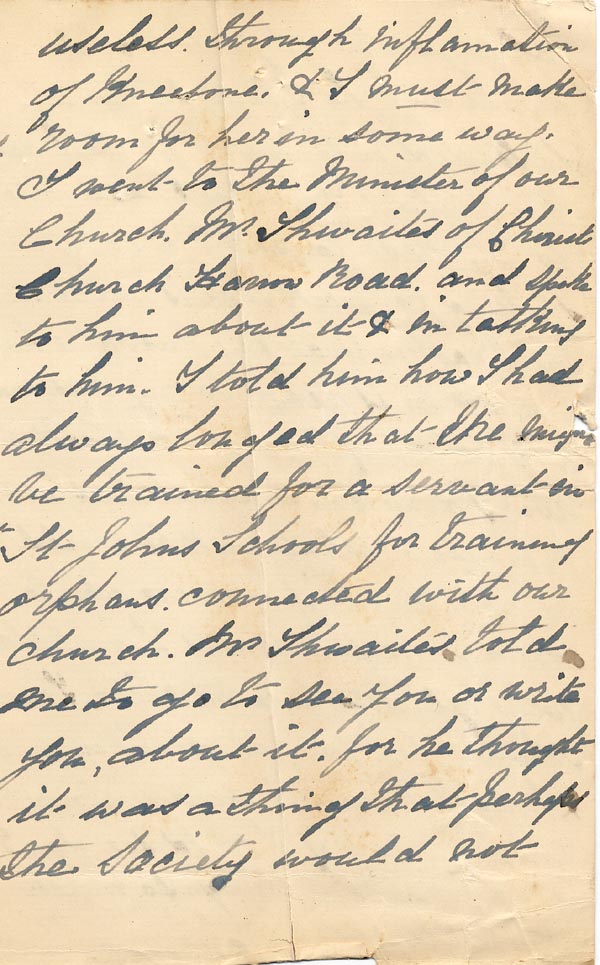 useless. through inflamation
of Kneebone. & I must make
room for her in some way.
I went to the Minister of our
Church. Mr. Thwaites of Christ
Church Harrow Road. and spoke
to him about it & in talking
to him. I told him how I had
always longed that she might
be trained for a servant in
St Johns Schools for training
orphans. connected with our
church. Mr Thwaites told
me to go to see you or write
you, about it. for he thought
it was a thing that perhaps
the Society would not